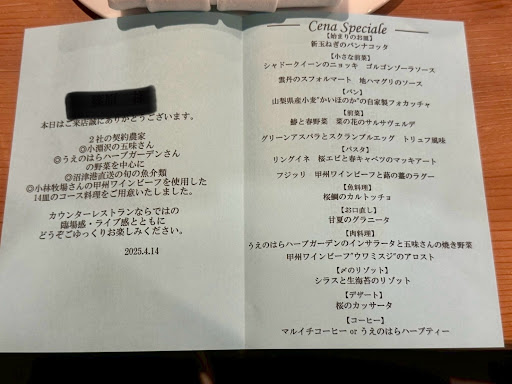 本日はご来店誠にありがとうございます。
2社の契約農家
◎小淵沢の五味さん
◎うえのはらハーブガーデンさん
の野菜を中心に
◎沼津港直送の旬の魚介類
◎小林牧場さんの甲州ワインビーフを使用した
14皿のコース料理をご用意いたしました。
カウンターレストランならではの
臨場感・ライブ感とともに
どうぞごゆっくりお楽しみください。
2025.4.14
Cena Speciale
【始まりのお皿】
新玉ねぎのパンナコッタ
【小さな前菜】
シャドークイーンのニョッキ ゴルゴンゾーラソース
雲丹のスフォルマート 地ハマグリのソース
【パン】
山梨県産小麦"かいほのか"の自家製フォカッチャ
【前菜】
鰺と春野菜 菜の花のサルサヴェルデ
グリーンアスパラとスクランブルエッグ トリュフ風味
【パスタ】
リングイネ 桜エビと春キャベツのマッキアート
フジッリ 甲州ワインビーフと蕗の薹のラグー
【魚料理】
桜鯛のカルトッチョ
【お口直し】
甘夏のグラニータ
【肉料理】
うえのはらハーブガーデンのインサラータと五味さんの焼き野菜
甲州ワインビーフ"ウワミスジ"のアロスト
【〆のリゾット】
シラスと生海苔のリゾット
【デザート】
桜のカッサータ
【コーヒー】
マルイチコーヒー or うえのはらハーブティー